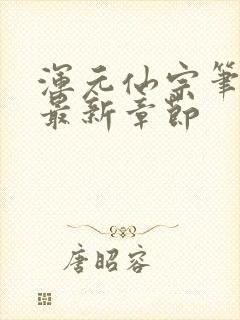 渾元仙宗筆
最新章節
唐昭容